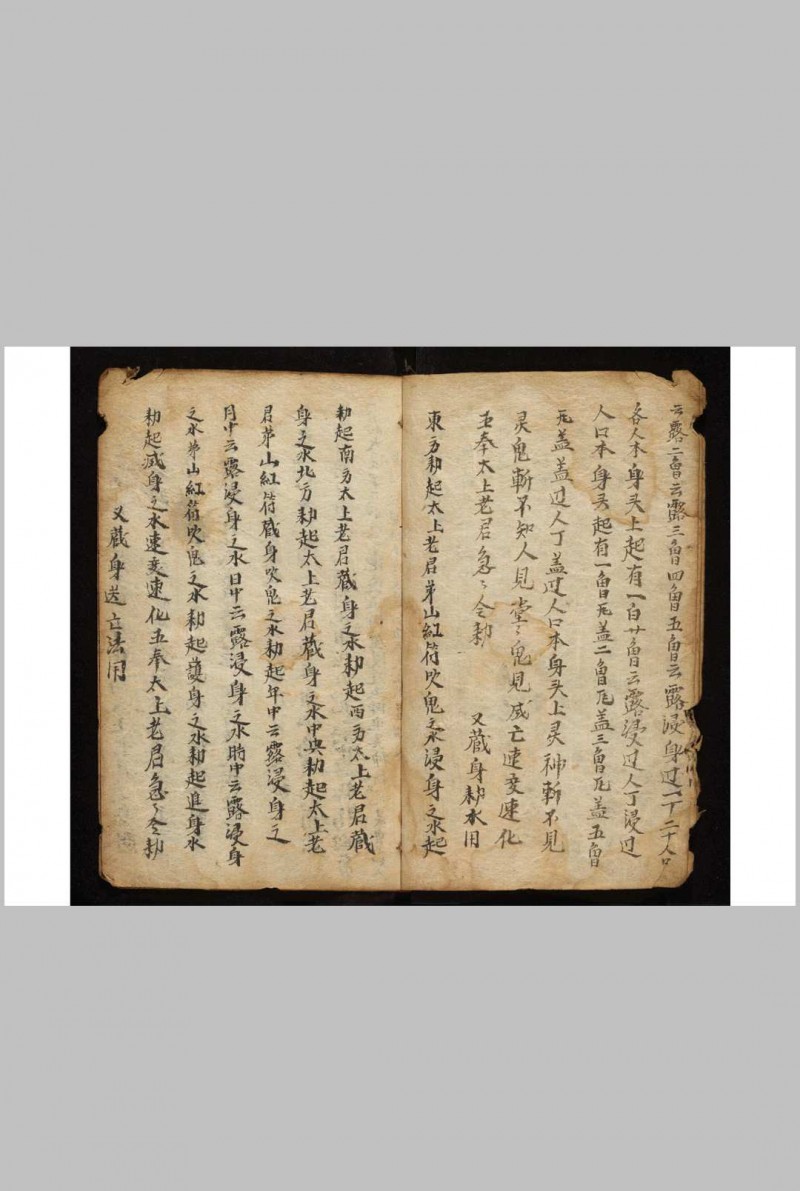 云露二魯云露三魯四魯五魯云露浸身过一丁二十人口
各人本身头上起有一百廿魯云露浸过人丁浸过
人口本身头起有一魯瓦盖二魯瓦盖三魯瓦盖五魯
瓦盖盖过人丁盖过人口本身头上灵神斬不見
灵鬼斬不知人見堂〻鬼見威亡速变速化
五奉太上老君急〻令勅
又蔵身勅水旧
東方勅起太上老君茅山紅符吹鬼之水浸身之水起
勅起南方太上老君蔵身之水勅起西方太上老君蔵
身之水北方勅起太上老君蔵身之水中央勅起太上老
君茅山紅符蔵身吹鬼之水勅起年中云露浸身之
月中云露浸身之水日中云露浸身之水時中云露浸身
之水茅山紅符吹鬼之水勅起護身之水勅起進身水
勅起藏身之水速变速化五奉太上老君急〻令勅
又蔵身送亡法用